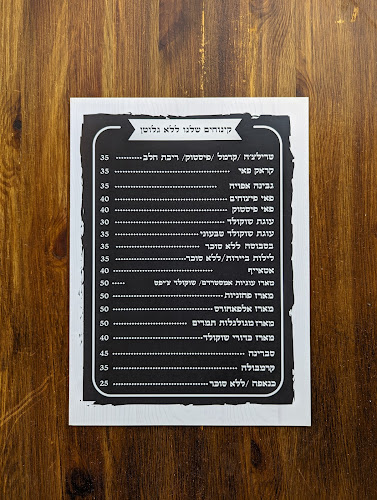 קינוחים שלנו ללא גלוטן
טרילצ'ה /קרמל /פיסטוק/ ריבת חלב 35
קראק פאי 35
גבינה אפויה 35
פאי פיצוחים 40
פאי פיסטוק 40
עוגת שוקולד 30
עוגת שוקולד טבעוני 35
בסבוסה ללא סוכר 35
לילות ביירות/ללא סוכר 35
אטאייף 40
מארז עוגיות אמסטרדם/ שוקולד צ'יפס 50
מארז פחזניות 50
מארז אלפאחורס 50
מארז מגולגלות תמרים 50
מארז כדורי שוקולד 40
סברינה 45
קרמבולה 35
כנאפה /ללא סוכר 25